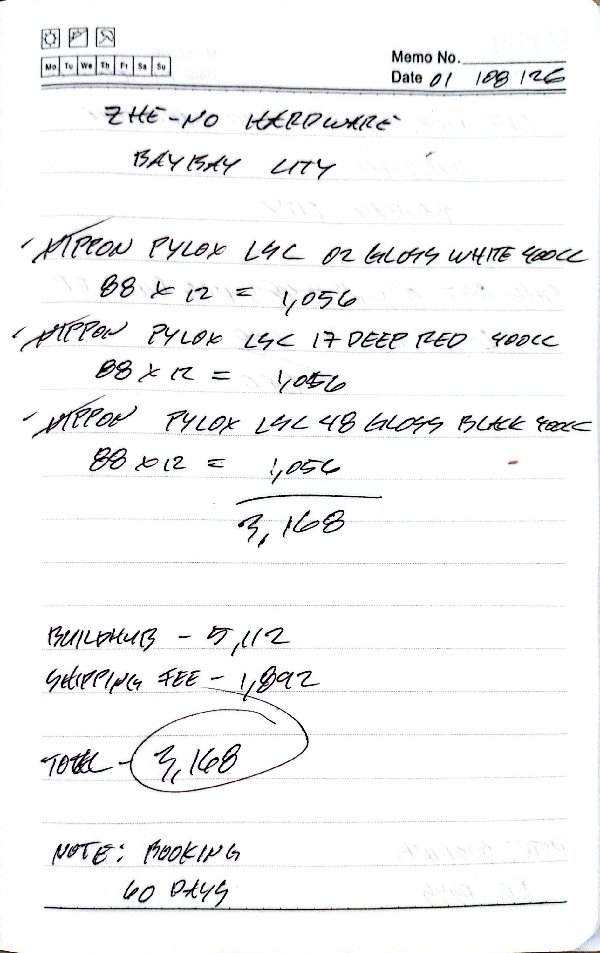 Mo Tu We Th Fr Sa Su
Memo No.
Date 01 / 08 / 26
ZHE-NO HARDWARE
BAYBAY CITY
NIPPON PYLOX LSC 02 GLOSS WHITE 400CC
88 x 12 = 1,056
NIPPON PYLOX LSC 17 DEEP RED 400CC
88 x 12 = 1,056
NIPPON PYLOX LSC 48 GLOSS BLACK 400CC
88 x 12 = 1,056
3,168
BUILDHUB - 5,112
SHIPPING FEE - 1,892
TOTAL - 3,168
NOTE: BOOKING
60 DAYS